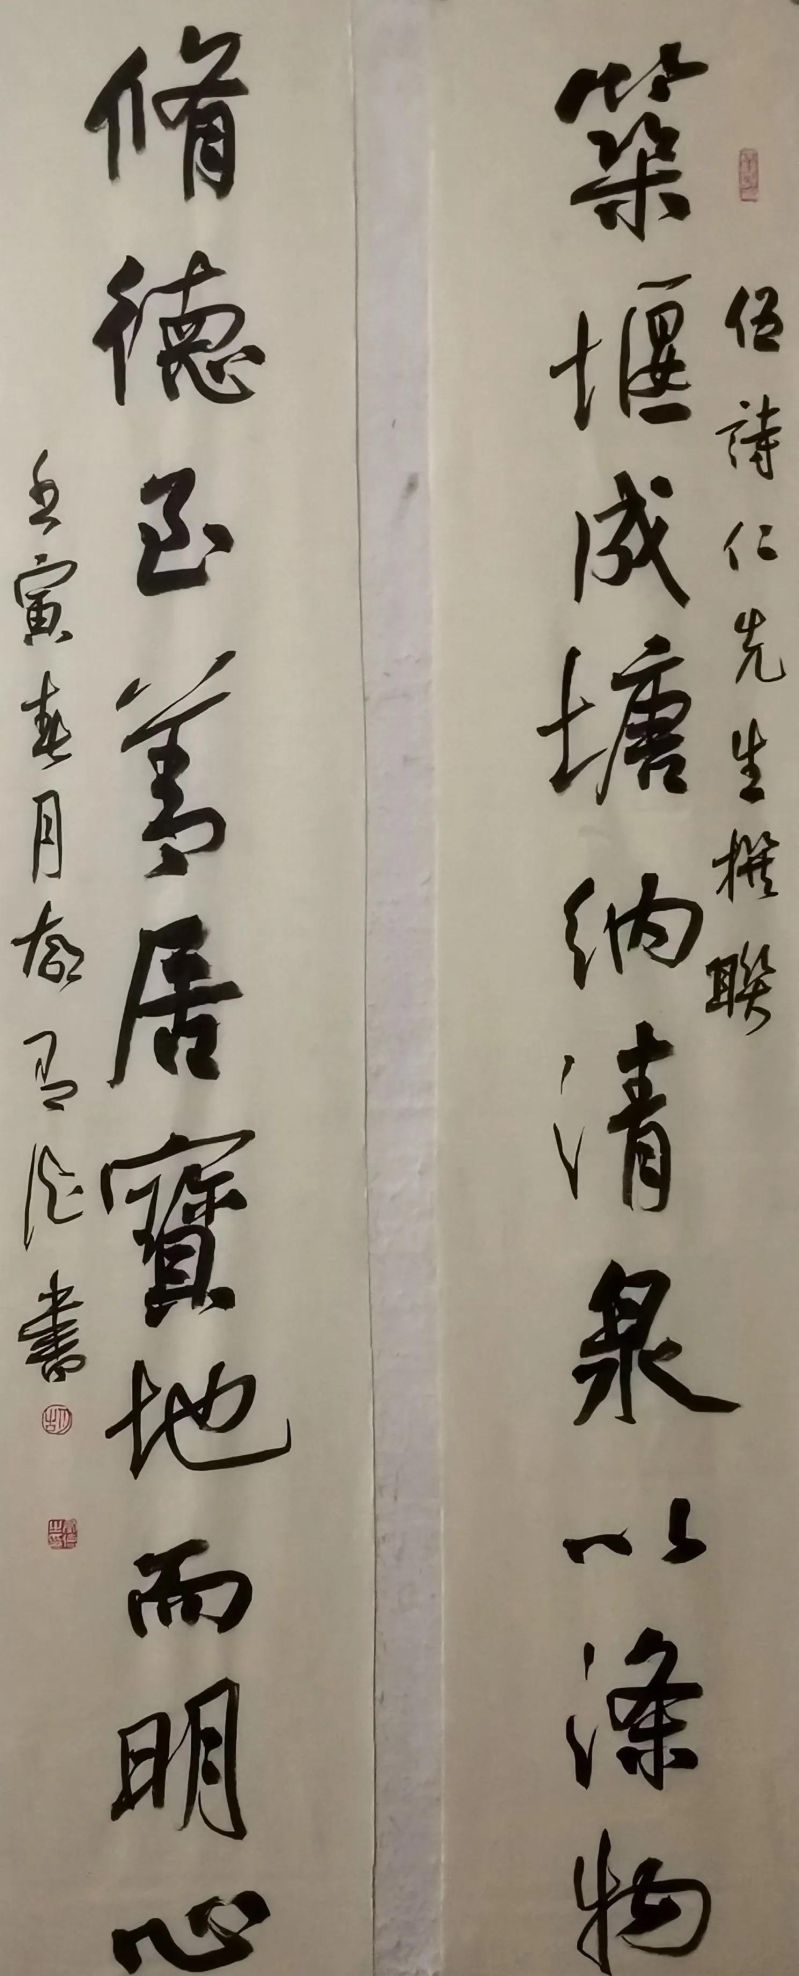 伍詩仁先生撰聯
築堰成塘納清泉以滌物
脩德至善居寶地而明心
壬寅春月 書